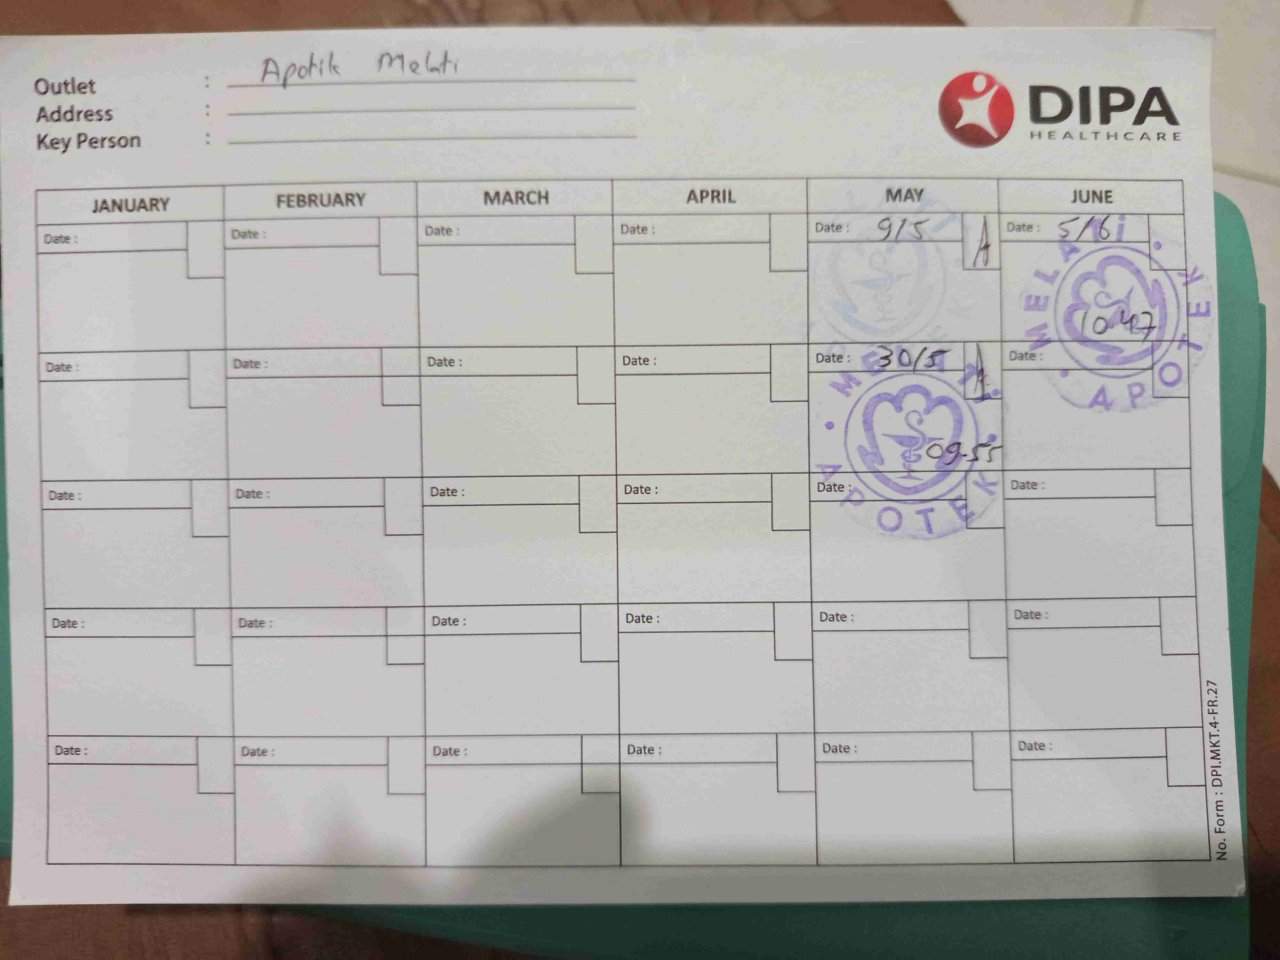 Outlet : Apotik Melati
Address :
Key Person :
DIPA
HEALTHCARE
JANUARY FEBRUARY MARCH APRIL MAY JUNE
Date : Date : Date : Date : Date : 9/5 A Date : 5/6
MELATI APOTEK
10-47
Date : Date : Date : Date : Date : 30/5 A Date :
MELATI APOTEK
09-55
Date : Date : Date : Date : Date : Date :
Date : Date : Date : Date : Date : Date :
Date : Date : Date : Date : Date : Date :
No. Form : DPI.MKT.4-FR.27